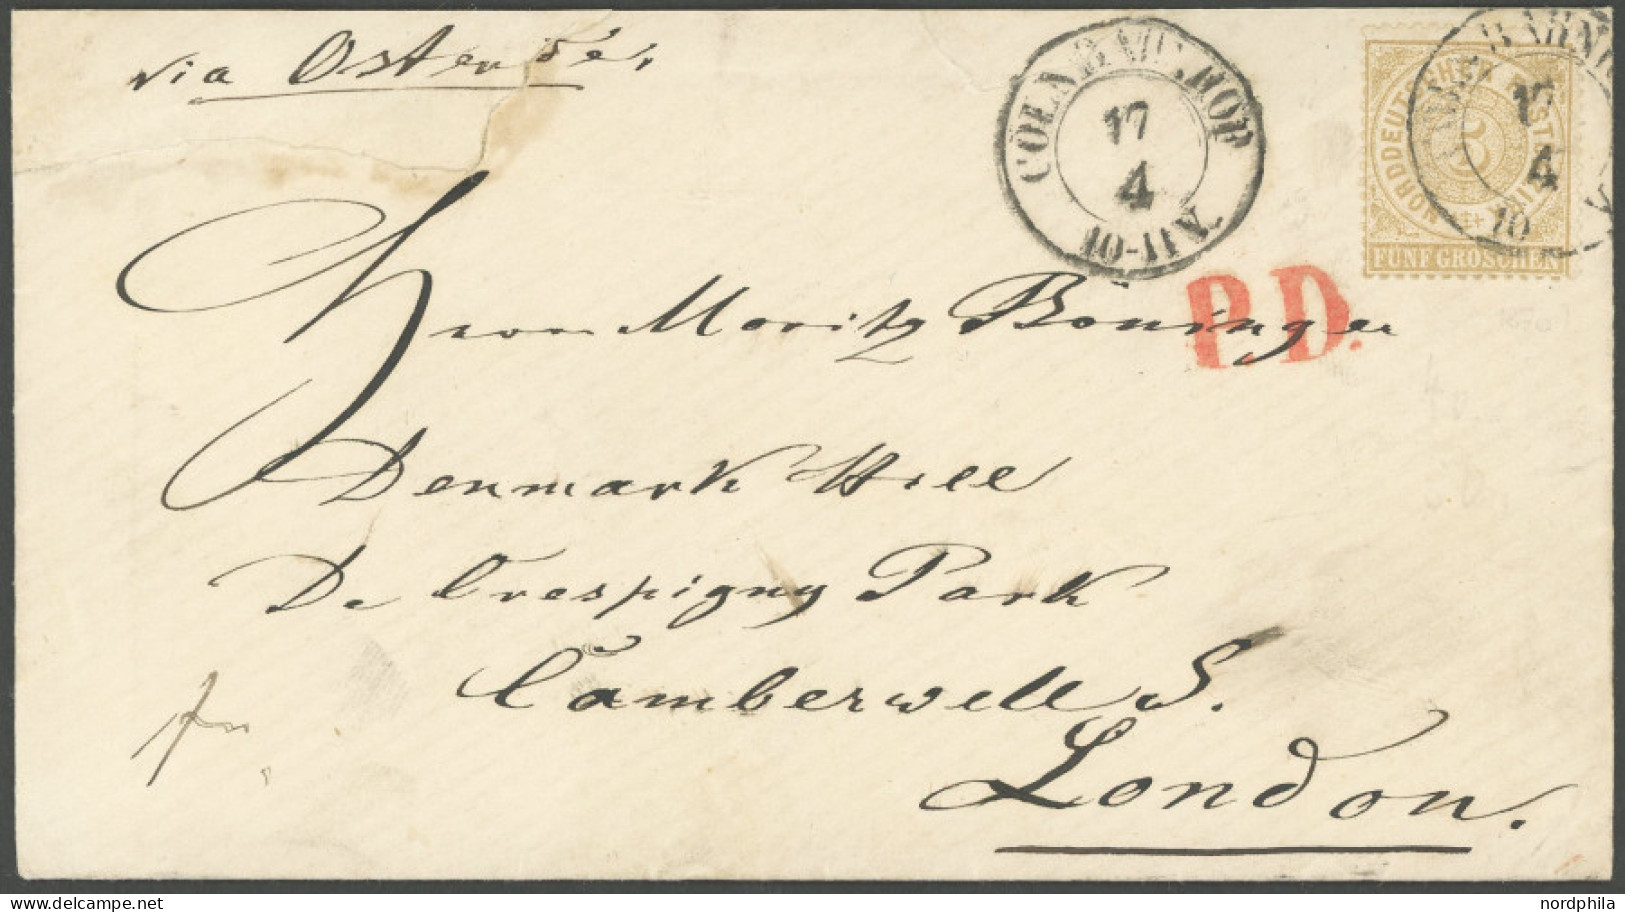 via Ostende,
COELN BAHNHOF
17
4
10-11 V.
BAHNH
17
4
10
NORDDEUTSCHER POSTBEZIRK
5
FÜNF GROSCHEN
P.D.
Herrn Moritz Boninger
Denmark Hill
De Crespigny Park
Camberwell S.
London.
nordphila.com